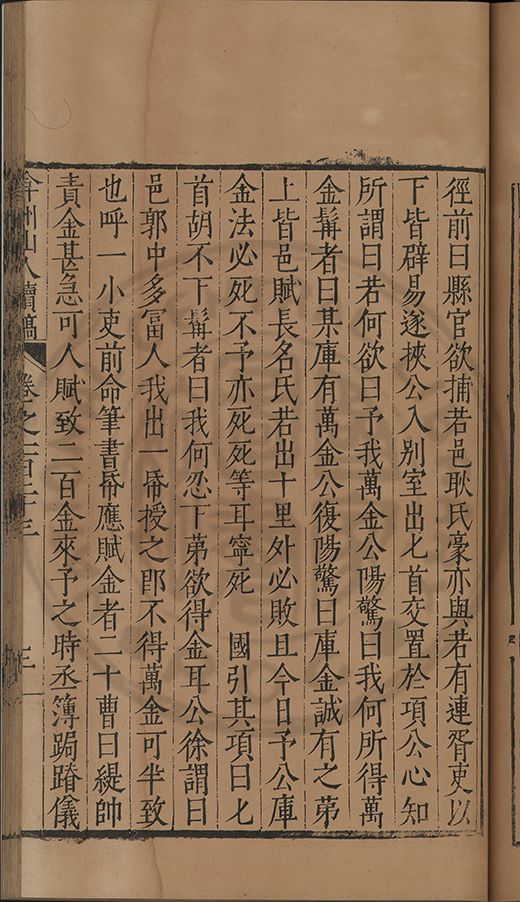 徑前曰縣官欲捕若邑耿氏豪亦與若有連胥吏以
下皆辟易遂挾公入别室出匕首交置於項公心知
所謂曰若何欲曰予我萬金公陽驚曰我何所得萬
金髯者曰某庫有萬金公復陽驚曰庫金誠有之苐
上皆邑賦長名氏若出十里外必敗且今日予公庫
金法必死不予亦死死等耳寧死　國引其項曰匕
首胡不下髯者曰我何忍下苐欲得金耳公徐謂曰
邑郭中多冨人我出一帋授之即不得萬金可半致
也呼一小吏前命筆書帋應賦金者二十曹曰緹帥
責金甚急可人賦致二百金來予之時丞簿跼蹐儀
弇州山人續稿　卷之　三